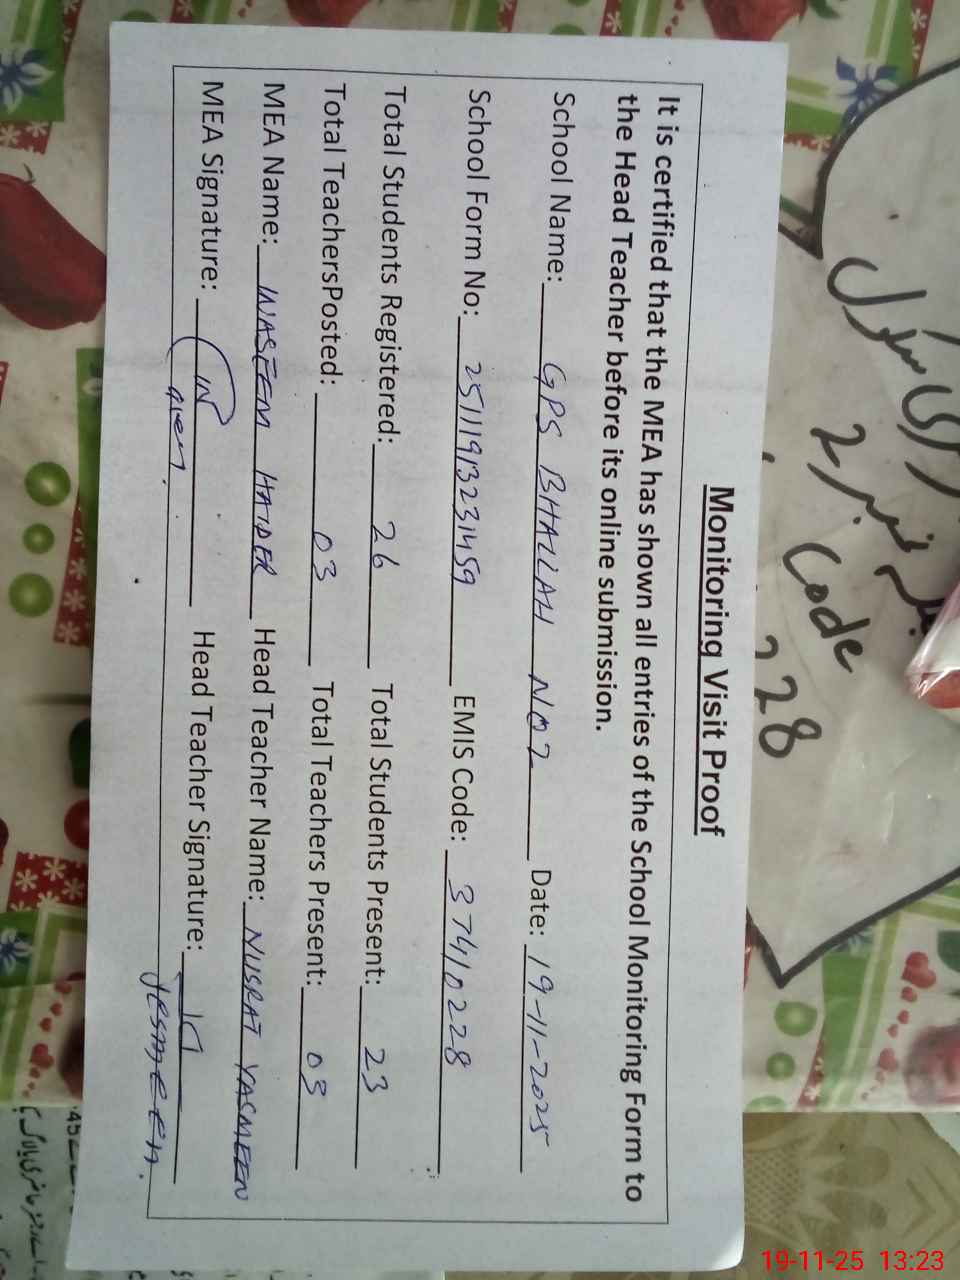 Monitoring Visit Proof
It is certified that the MEA has shown all entries of the School Monitoring Form to
the Head Teacher before its online submission.
School Name: GPS BHALLAH NO2 Date: 19-11-2025
School Form No: 25111913231459 EMIS Code: 37410228
Total Students Registered: 26 Total Students Present: 23
Total TeachersPosted: 03 Total Teachers Present: 03
MEA Name: WASEEM HAIDER Head Teacher Name: NUSRAT YASMEEN
MEA Signature: Head Teacher Signature:
نمبر 2
Code
228
19-11-25 13:23